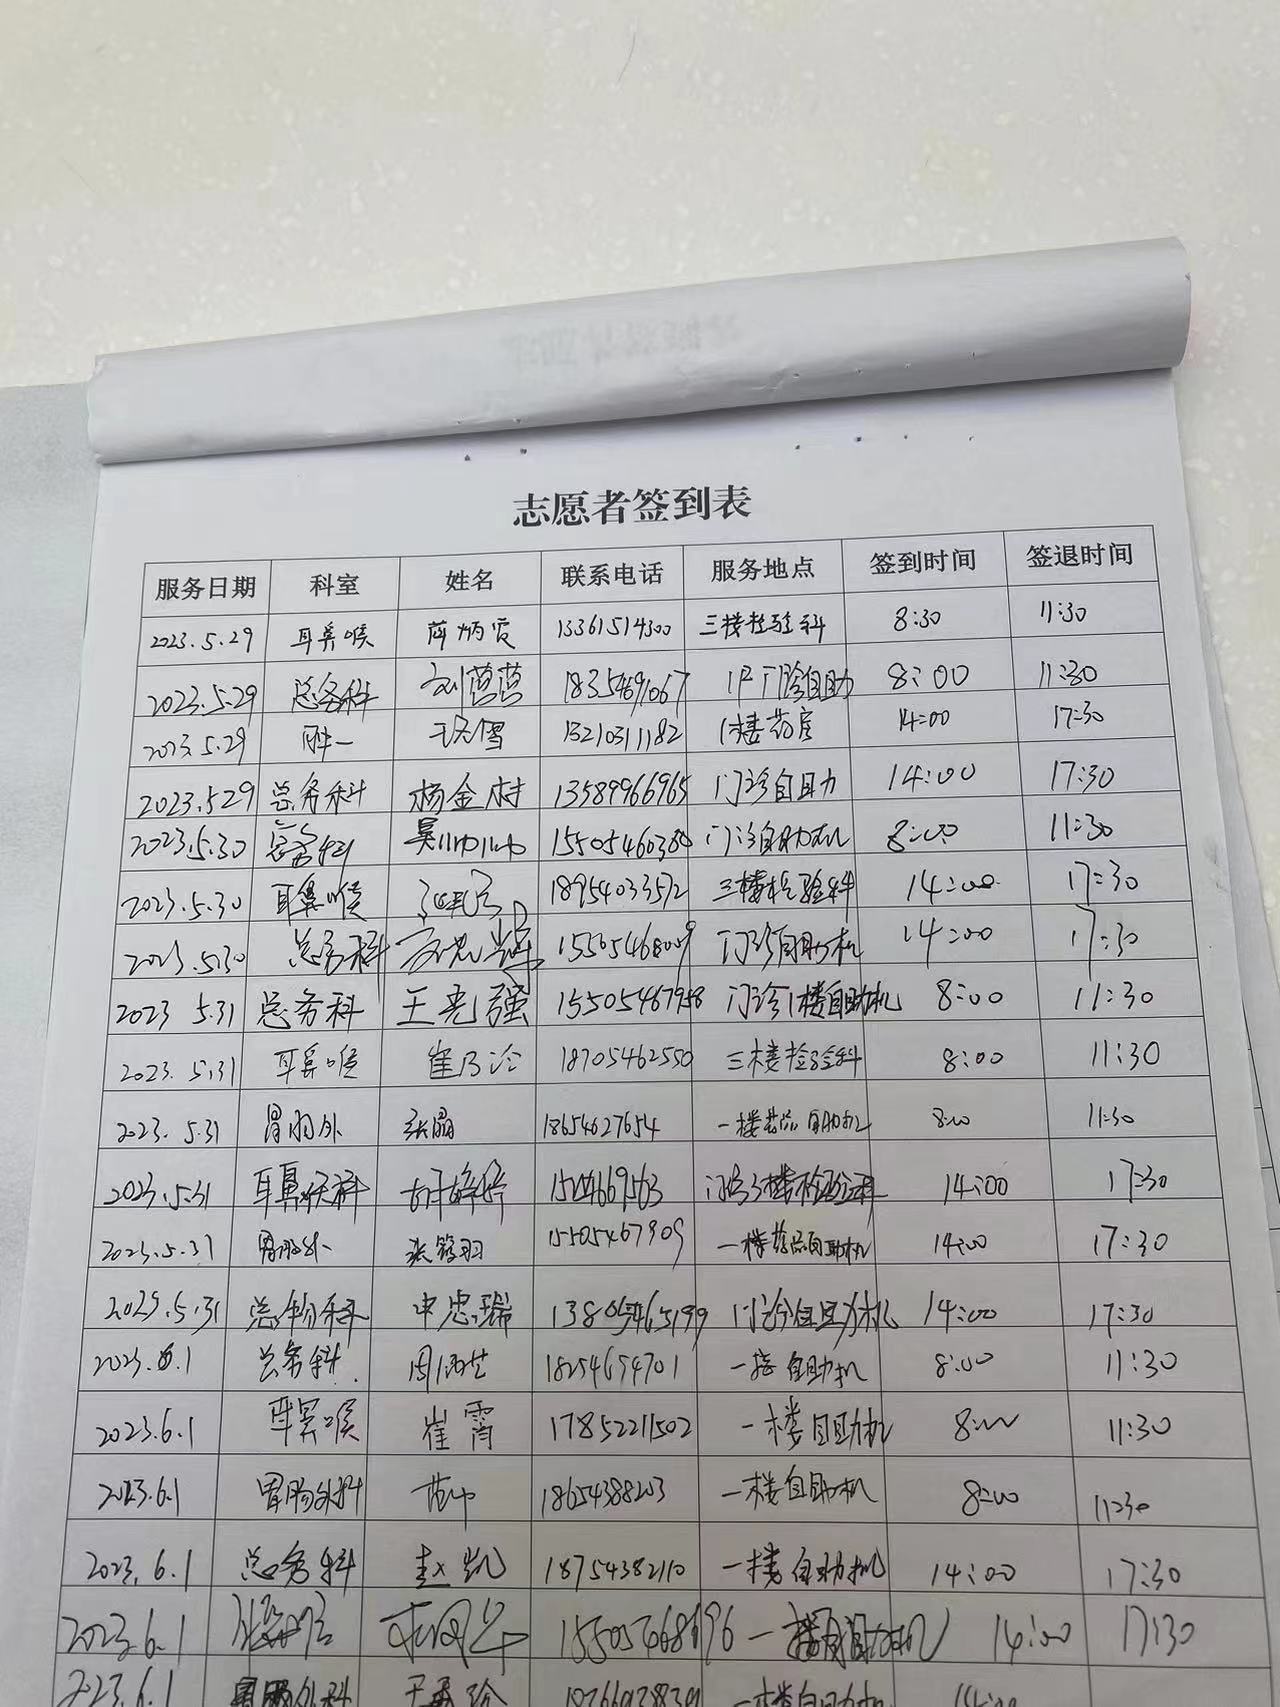 志愿者签到表
服务日期 科室 姓名 联系电话 服务地点 签到时间 签退时间
2023.5.29 耳鼻喉 薛炳霞 13361514300 三楼检验科 8:30 11:30
2023.5.29 总务科 刘蓓蓓 18354691067 门诊自助 8:00 11:30
2023.5.29 肿一 13210311182 1楼药房 14:00 17:30
2023.5.29 总务科 杨金村 13589966965 门诊自助 14:00 17:30
2023.5.30 总务科 吴 15505460380 门诊自助机 8:00 11:30
2023.5.30 耳鼻喉 18954033572 三楼检验科 14:00 17:30
2023.5.30 总务科 15505468009 门诊自助机 14:00 17:30
2023 5.31 总务科 王光强 15505467958 门诊1楼自助机 8:00 11:30
2023.5.31 耳鼻喉 崔乃泠 18705462550 三楼检验科 8:00 11:30
2023.5.31 胃肠外 张晶 18654627654 一楼药品自助机 8:00 11:30
2023.5.31 耳鼻喉科 胡婷婷 门诊3楼检验科 14:00 17:30
2023.5.31 胃肠外 张筱羽 15505467909 一楼药品自助机 14:00 17:30
2023.5.31 总务科 申忠瑞 门诊自助机 14:00 17:30
2023.6.1 总务科 周 18254654701 一楼自助机 8:00 11:30
2023.6.1 耳鼻喉 崔霄 17852211502 一楼自助机 8:00 11:30
2023.6.1 胃肠外科 18654388203 一楼自助机 8:00 11:30
2023.6.1 总务科 赵凯 18754382110 一楼自助机 14:00 17:30
2023.6.1 15505468696 一楼自助机 14:00 17:30
2023.6.1 胃肠外科 一楼自助机 14:00